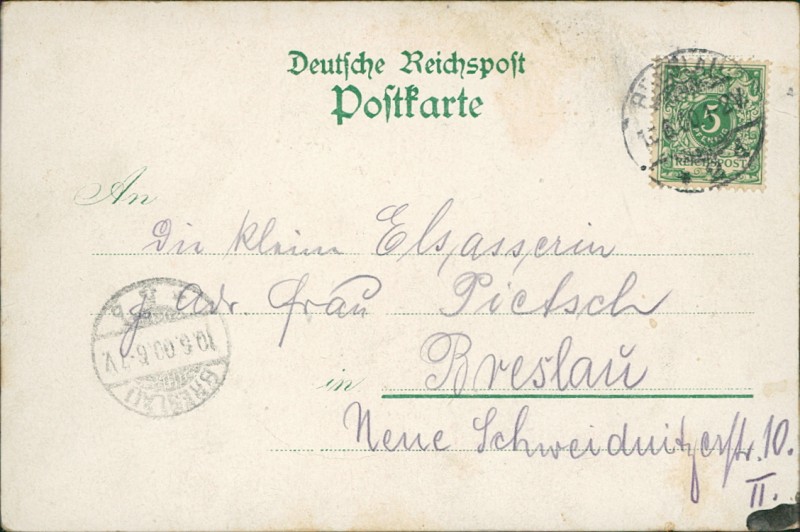 Deutsche Reichspost
Postkarte
5
PFENNIG
REICHSPOST
An
Die kleine Elsasserin
p. Adr. Frau Pietsch
in Breslau
Neue Schweidnitzerstr. 10.
II.
BRESLAU
10.6.00.6-7V.